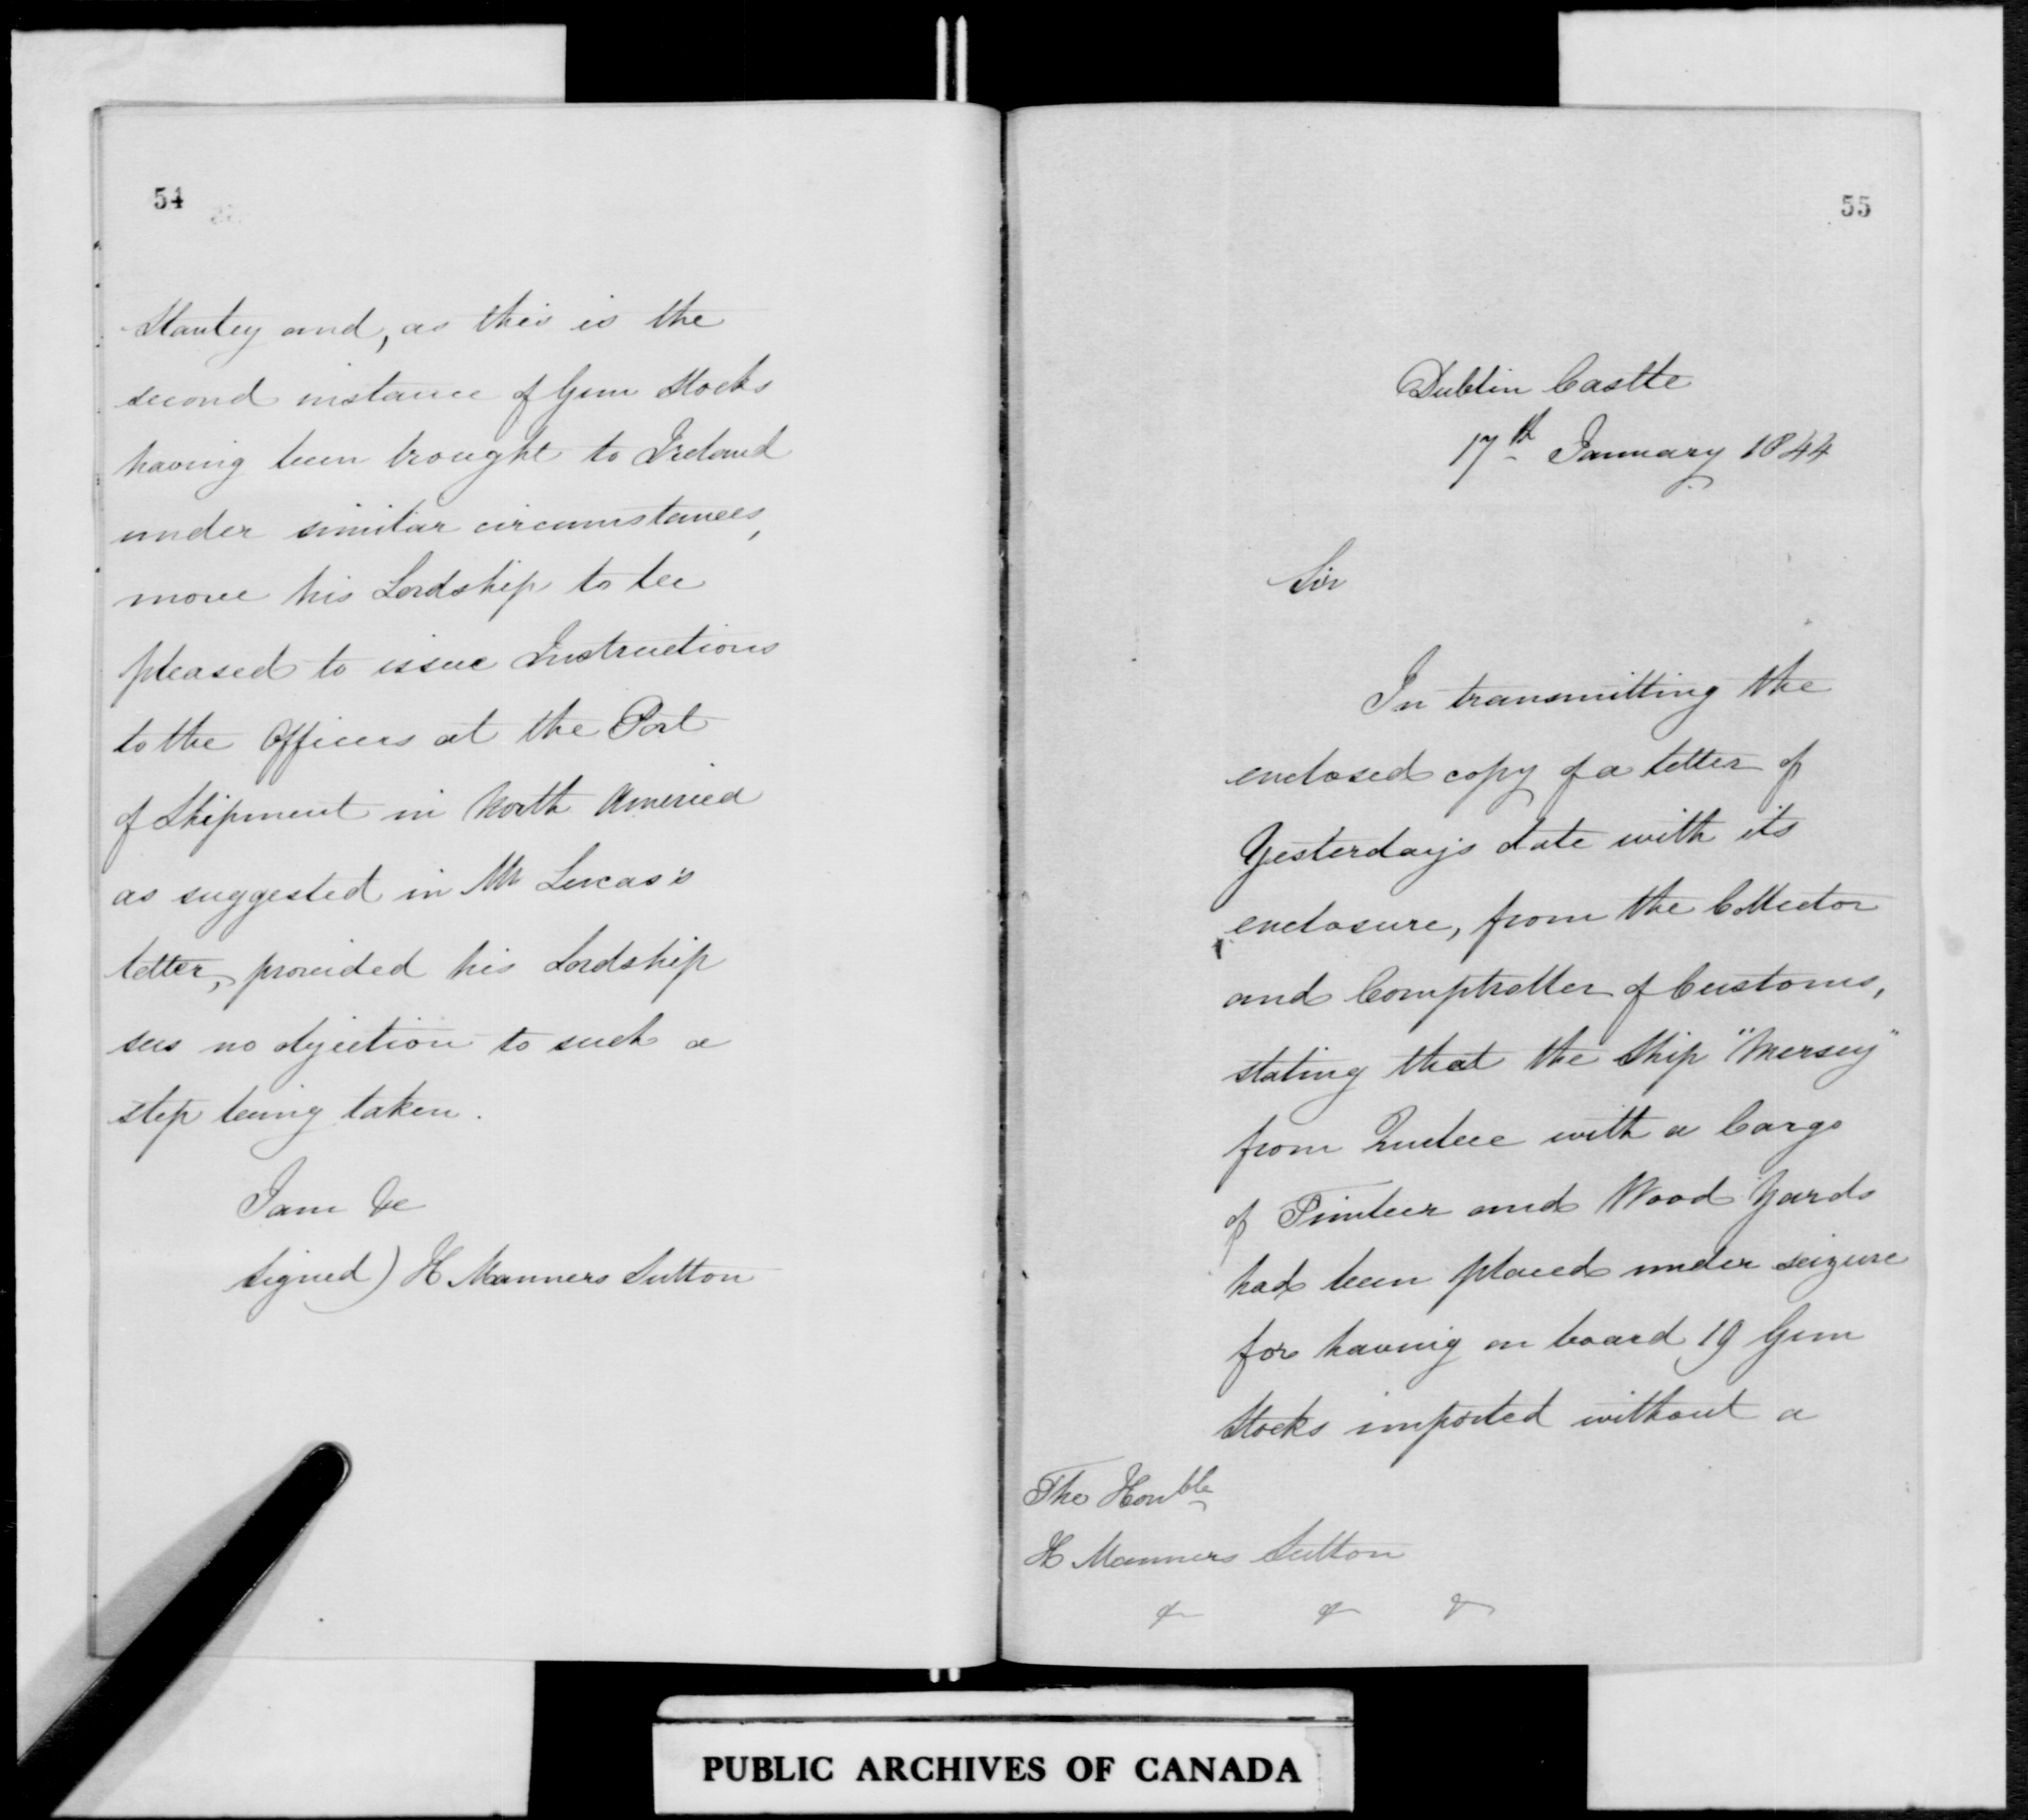 54
Stanley and, as this is the
second instance of Gun Stocks
having been brought to Ireland
under similar circumstances,
move his Lordship to be
pleased to issue Instructions
to the Officers at the Port
of Shipment in North America
as suggested in Mr Lucas's
letter, provided his Lordship
sees no objection to such a
step being taken.
I am &c
Signed) H Manners Sutton
55
Dublin Castle
17th January 1844
Sir
In transmitting the
enclosed copy of a letter of
Yesterday's date with its
enclosure, from the Collector
and Comptroller of Customs,
stating that the Ship "Mersey"
from Quebec with a Cargo
of Timber and Wood Yards
had been placed under seizure
for having on board 19 Gun
Stocks imported without a
The Honble
H Manners Sutton
& & &
PUBLIC ARCHIVES OF CANADA